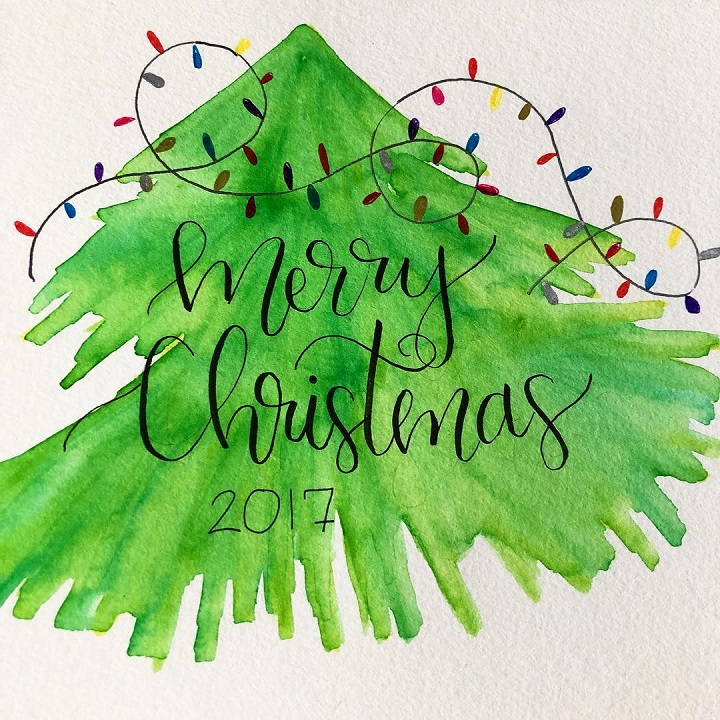 Merry
Christmas
2017